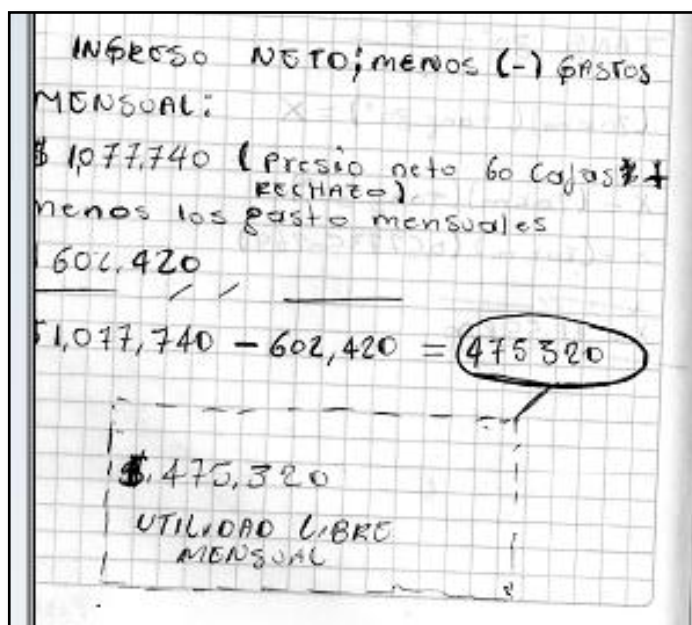 INGRESO NETO; MENOS (-) GASTOS
MENSUAL:
$ 1,077,740 (Presio neto 60 Cajas +
RECHAZO)
menos los gasto mensuales
602,420
$1,077,740 - 602,420 = 475320
$.475,320
UTILIDAD LIBRE
MENSUAL